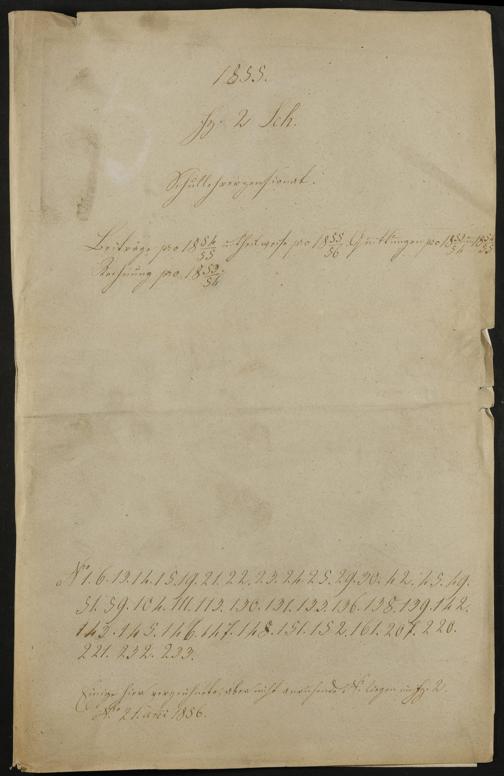 1855.
Fz. 2 Sch.
Schullehrerpensionat.
Beiträge pro 1854/55 u. theilweise pro 1855/56. Quittungen pro 1853/54 u. 1854/55
Rechnung pro 1853/54.
No 1. 6. 13. 14. 15. 19. 21. 22. 23. 24. 25. 29. 30. 42. 45. 49.
51. 59. 104. 111. 113. 130. 131. 133. 136. 138. 139. 142.
143. 145. 146. 147. 148. 151. 152. 161. 207. 220.
221. 232. 233.
Einige hier verzeichnete, aber nicht No. liegen im Fz. 2.
No 21. 1856.